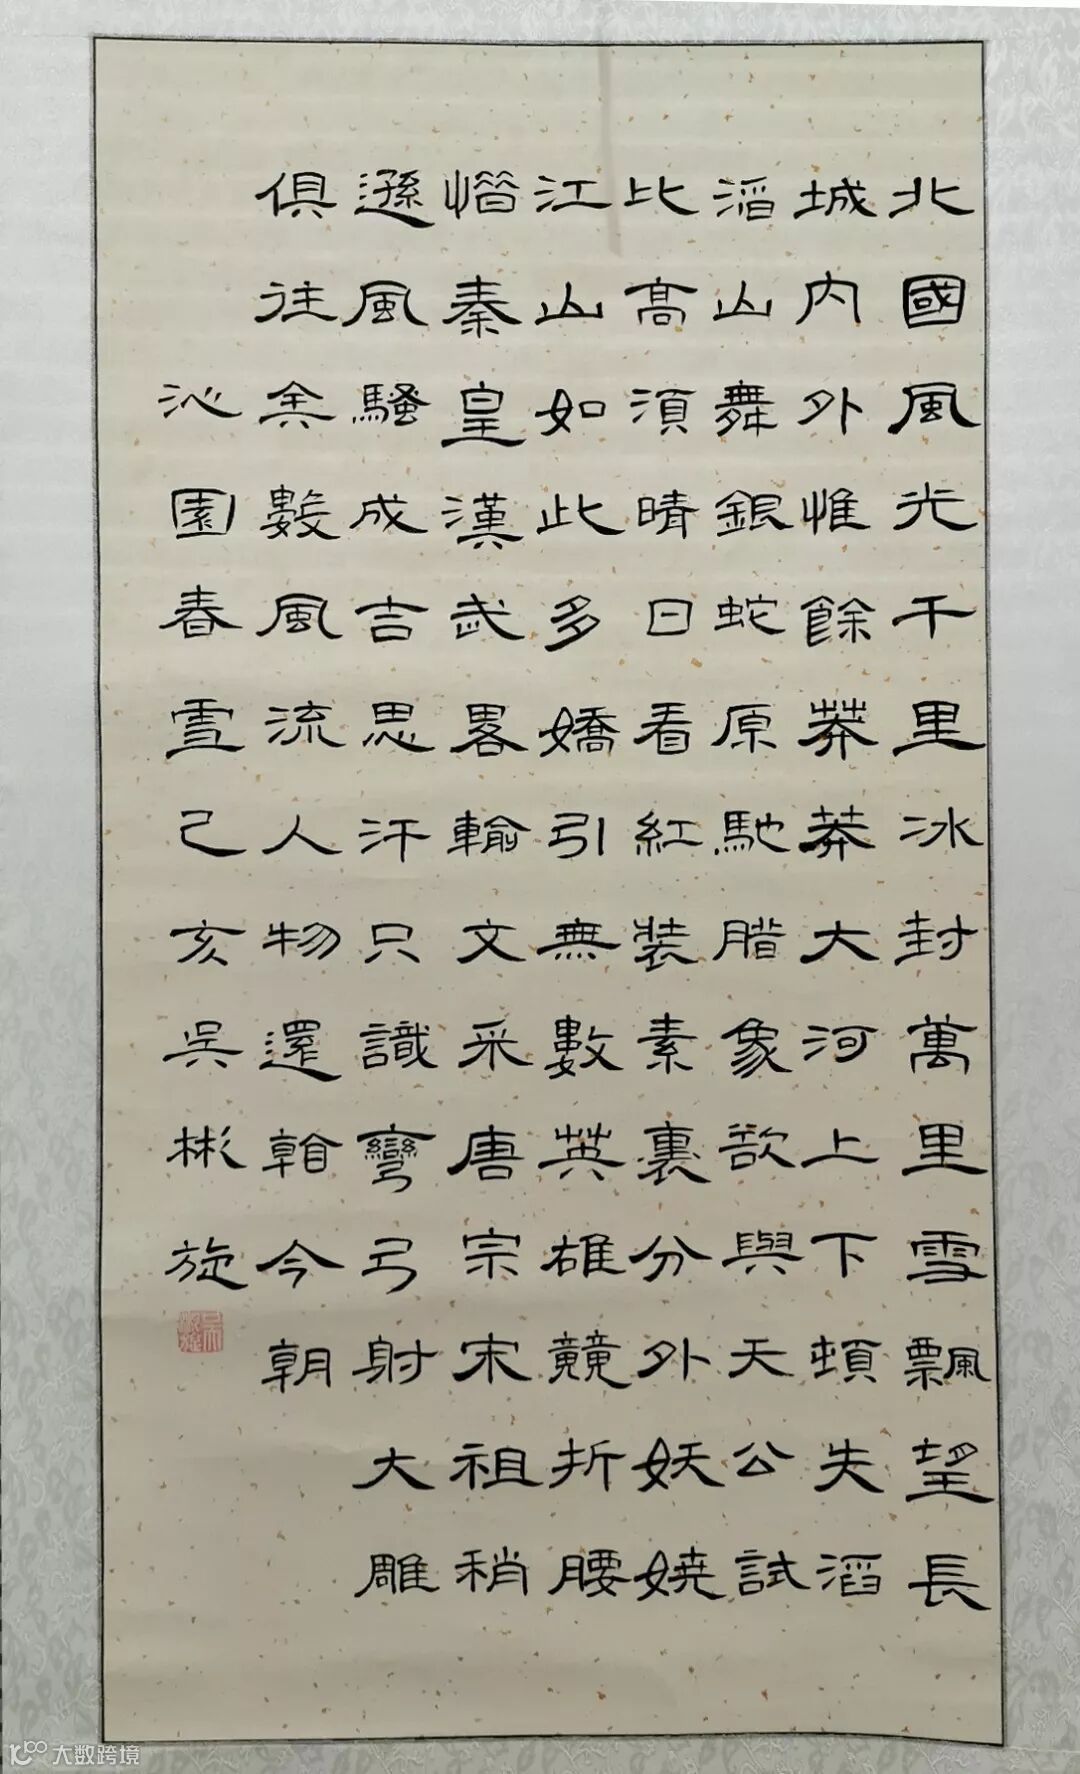 北國風光千里冰封萬里雪飄望長
城内外惟餘莽莽大河上下頓失滔
滔山舞銀蛇原馳腊象欲與天公試
比高須晴日看紅裝素裹分外妖嬈
江山如此多嬌引無數英雄競折腰
惜秦皇漢武畧輸文采唐宗宋祖稍
遜風騷成吉思汗只識彎弓射大雕
俱往矣數風流人物還看今朝
沁園春雪己亥吳彬旋
大数跨境